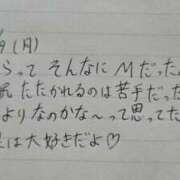 9 (月)
らって そんなに Mだった
尻 たたかれるのは苦手だった
よりなのかな~って思ってた
は大好きだよ♡